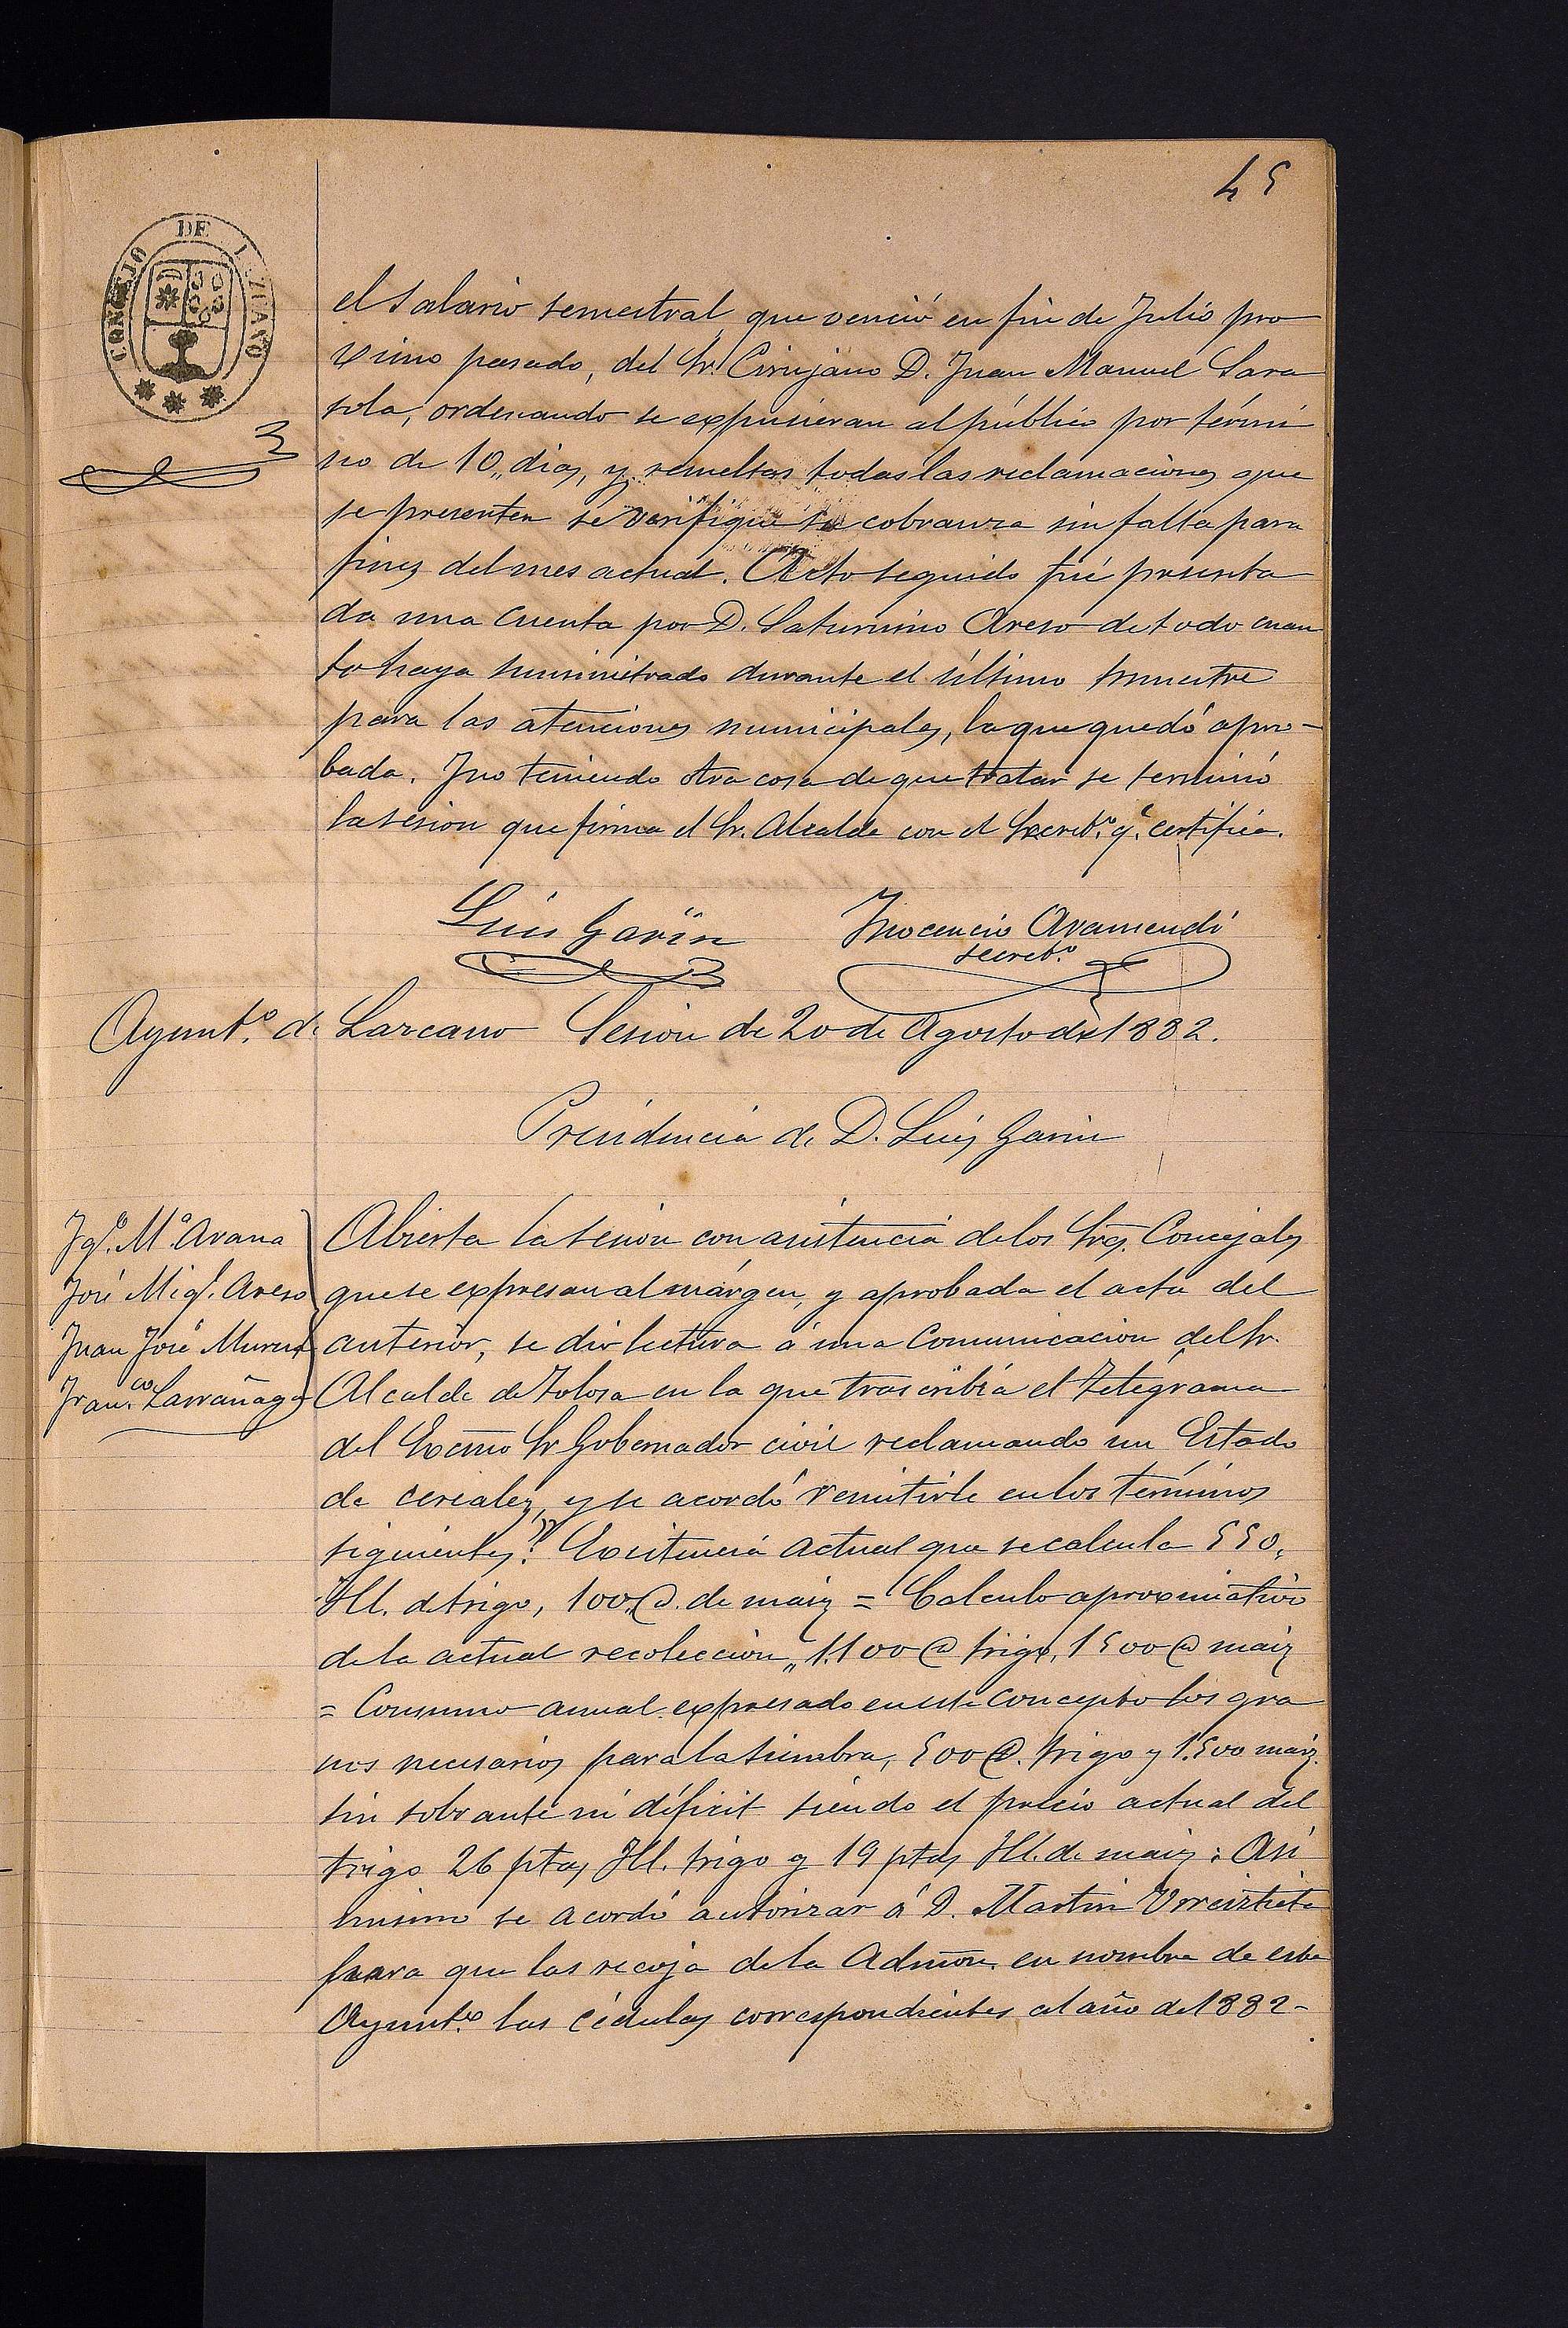 45
CONCEJO DE LAZCANO
el salario semestral que venció en fin de Julio pro
ximo pasado, del Sr. Cirujano D. Juan Manuel Sara
sola, ordenando se expusieran al público por térmi
no de 10,, dias, y resueltas todas las reclamaciones que
se presenten se verifique la cobranza sin falta para
fines del mes actual. Acto seguido fué presenta
da una cuenta por D. Saturnino Areso de todo cuan
to haya suministrado durante el último trimestre
para las atenciones municipales, la que quedó apro-
bada. Y no teniendo otra cosa de que tratar se terminó
la sesion que firma el Sr. Alcalde con el Secret.º q.e certifica.
Luis Garin Inocencio Aramendi
secret.º
Ayunt.º de Lazcano Sesion de 20 de Agosto de 1882.
Presidencia de D. Luis Garin
Ygº. Mª Arana
José Migl. Areso
Juan José Murua
Fran.co Larrañaga
Abierta la sesion con asistencia de los Sres. Concejales
que se expresan al márgen, y aprobada el acta del
anterior, se dió lectura á una Comunicacion del Sr.
Alcalde de Tolosa en la que trascribía el Telégrama
del Excmo Sr Gobernador civil reclamando un Estado
de cereales, y se acordó remitirle en los términos
siguientes: " Existencia actual que se calcula 550,
Hl. de trigo, 100,, @. de maiz = Calculo aproximativo
de la actual recoleccion,, 1.100 @ trigo, 1500 @ maiz
= Consumo anual expresado en este concepto los gra
nos necesarios para la siembra, 500 @. trigo y 1.500 maiz.
sin sobrante ni déficit siendo el precio actual del
trigo 26 ptas Hl. trigo y 19 ptas Hl. de maiz: Asi
mismo se acordó autorizar á D. Martin Urreiztieta
para que las recoja de la Admon. en nombre de este
Ayunt.º las cédulas correspondientes al año de 1882-